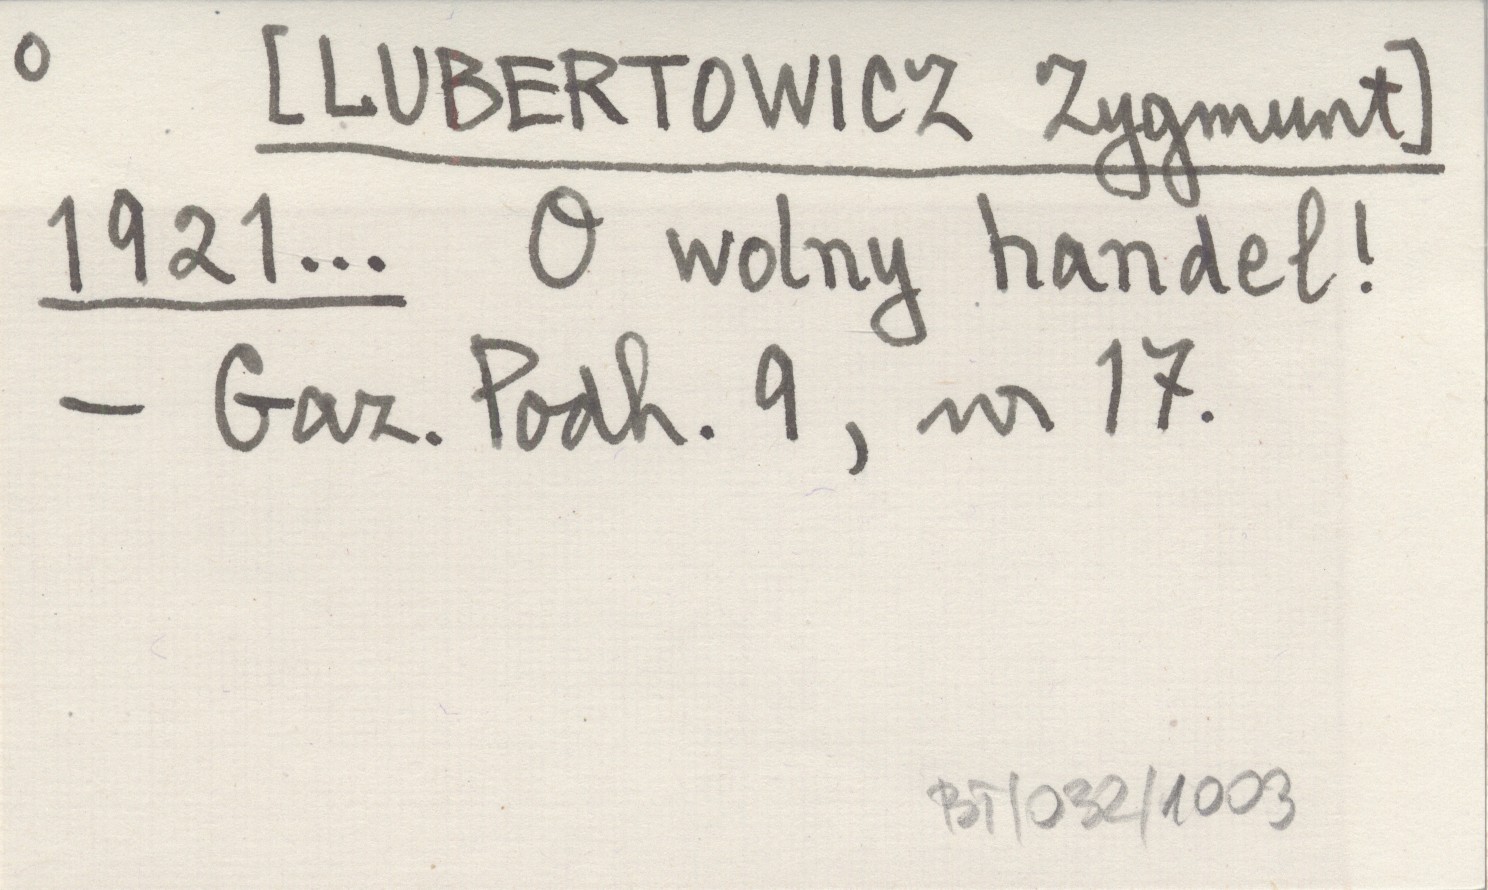 o [LUBERTOWICZ Zygmunt]
1921... O wolny handel!
— Gaz. Podh. 9, nr 17.
BT/032/1003